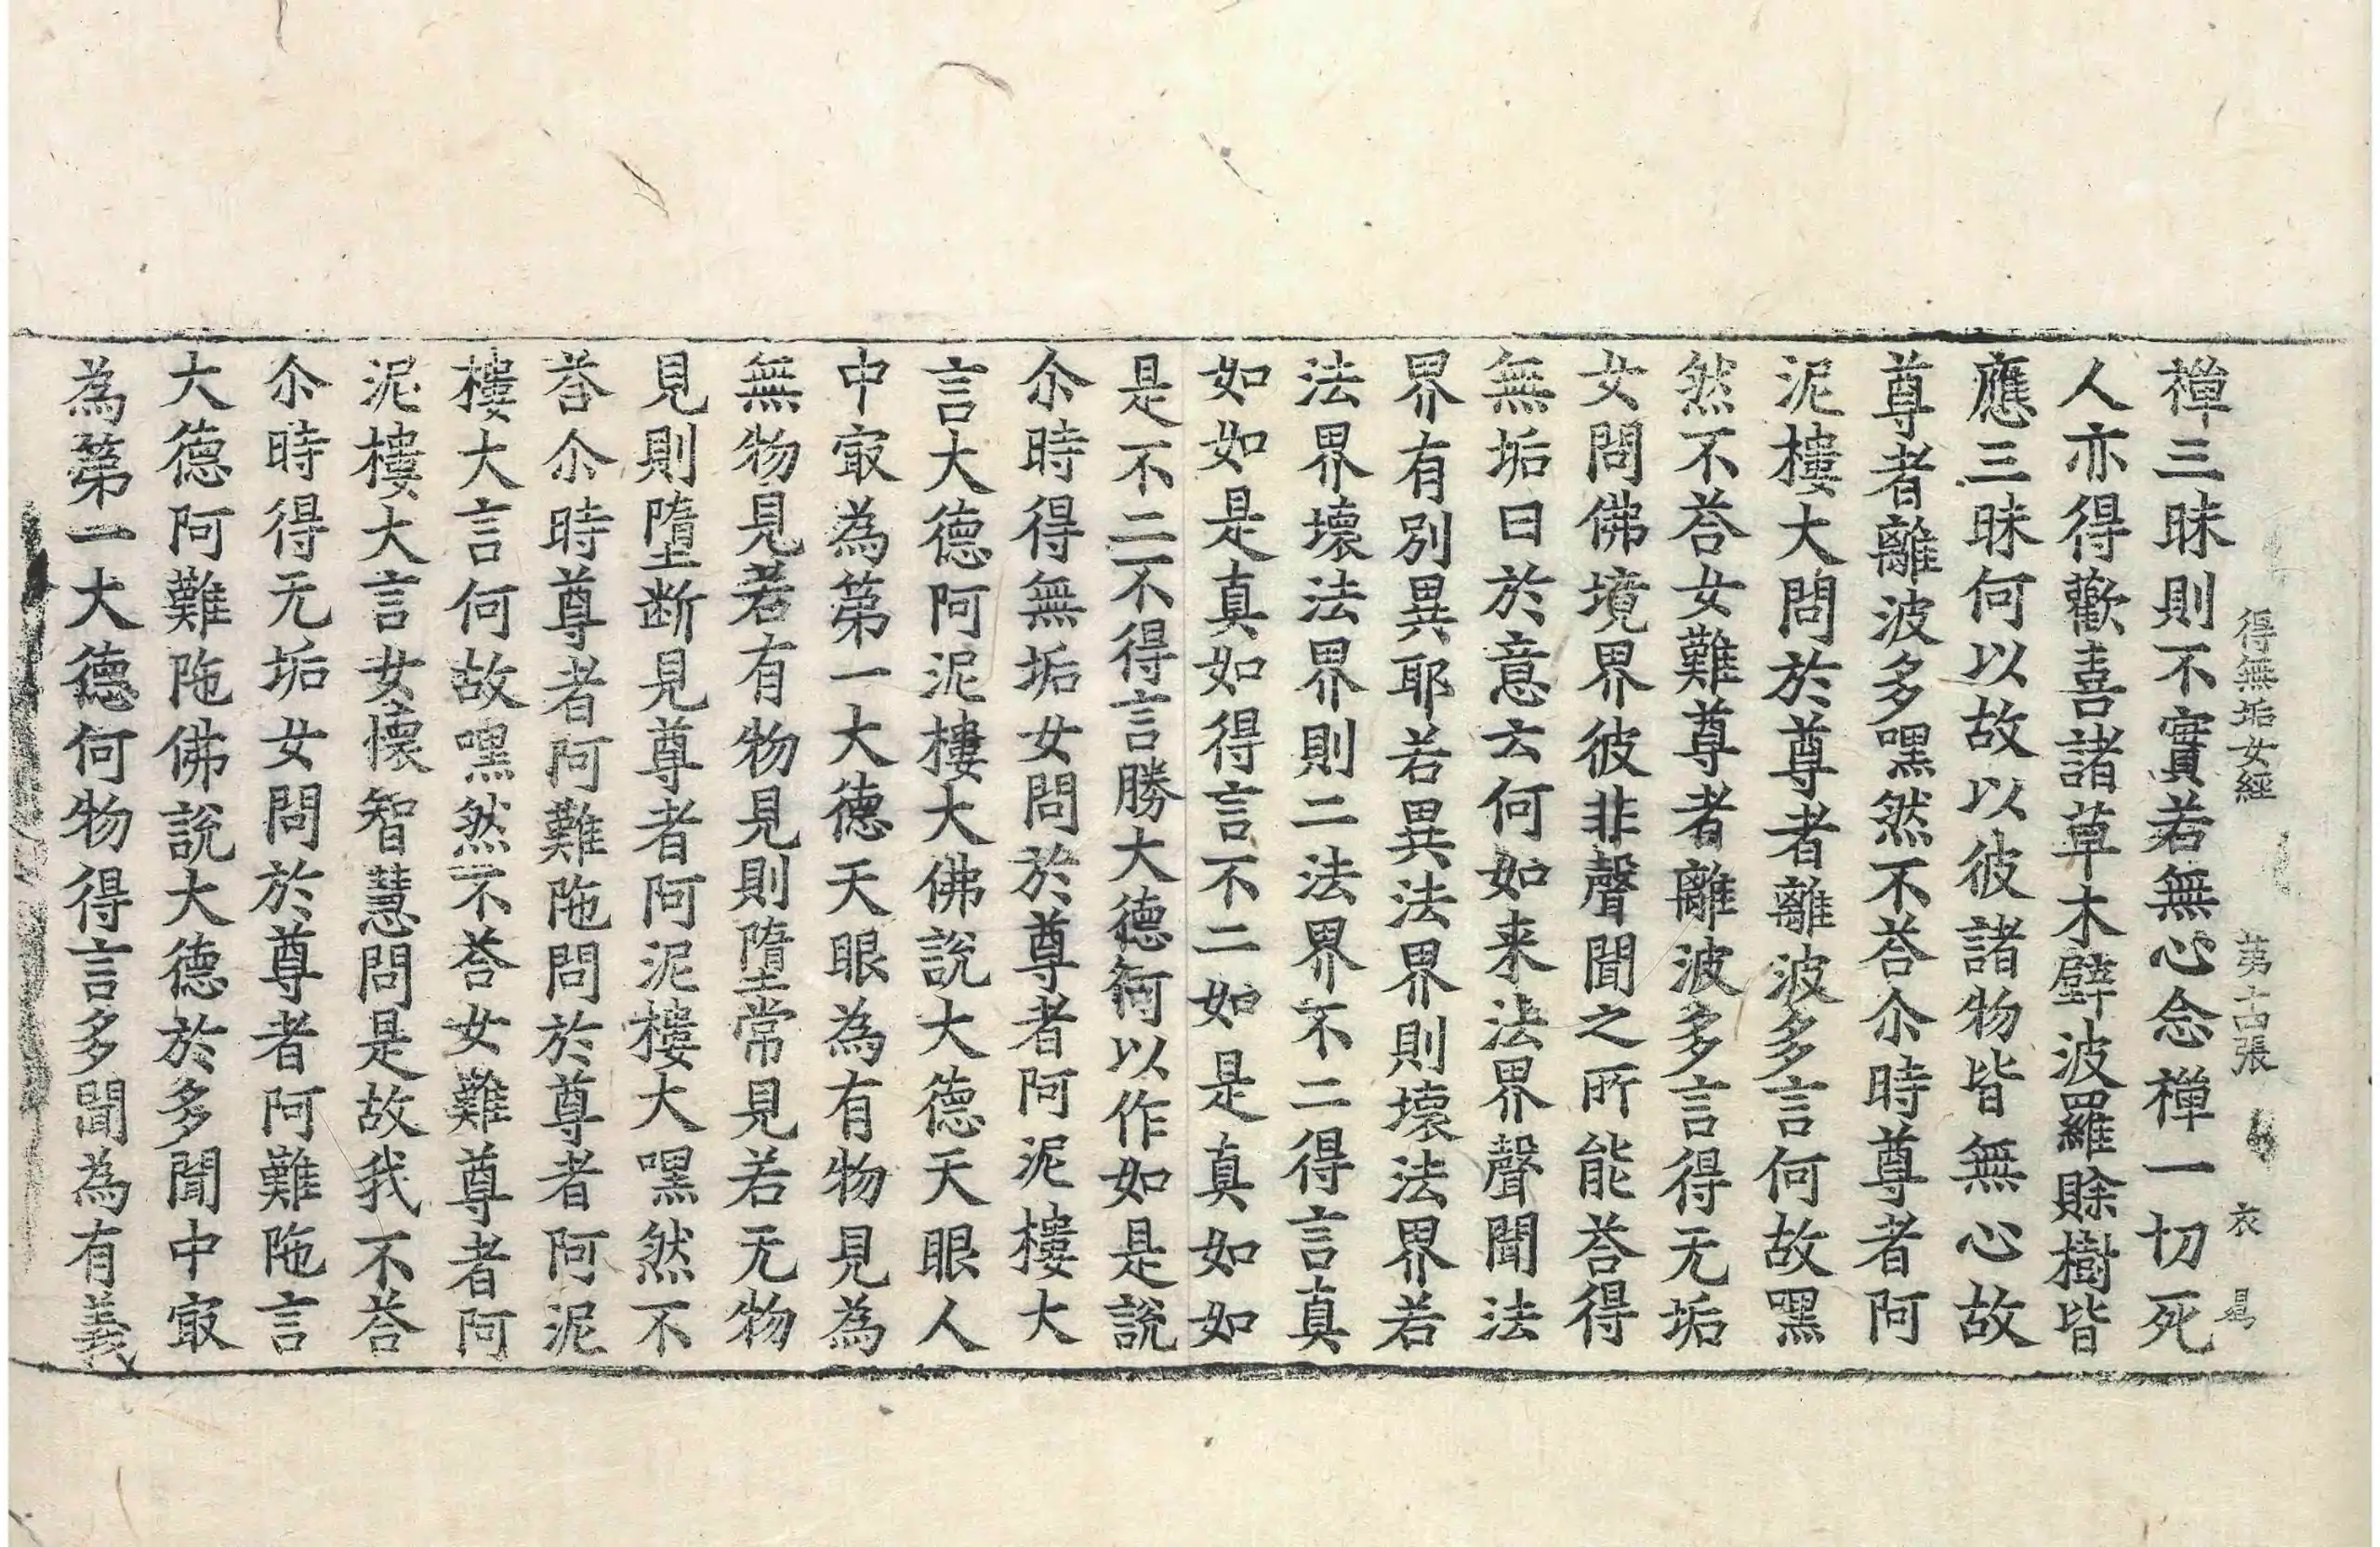 得無垢女經 苐十四張 衣
禪三昧則不實若無心念禪一切死
人亦得歡喜諸草木壁波羅賖樹皆
應三昧何以故以彼諸物皆無心故
尊者離波多嘿然不荅尒時尊者阿
泥樓大問於尊者離波多言何故嘿
然不荅女難尊者離波多言得无垢
女問佛境界彼非聲聞之所能荅得
無垢曰於意云何如来法界聲聞法
界有別異耶若異法界則壞法界若
法界壞法界則二法界不二得言真
如如是真如得言不二如是真如如
是不二不得言勝大德何以作如是說
尒時得無垢女問於尊者阿泥樓大
言大德阿泥樓大佛說大德天眼人
中㝡為苐一大德天眼為有物見為
無物見若有物見則墮常見若无物
見則墮断見尊者阿泥樓大嘿然不
荅尒時尊者阿難陁問於尊者阿泥
樓大言何故嘿然不荅女難尊者阿
泥樓大言女懷智慧問是故我不荅
尒時得无垢女問於尊者阿難陁言
大德阿難陁佛說大德於多聞中㝡
為苐一大德何物得言多聞為有義